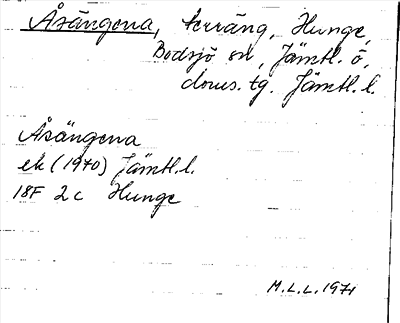 Åsängena, terräng, Hunge,
Bodsjö sn, Jämtl. ö.
doms.tg. Jämtl. l.
Åsängena
ek (1970) Jämtl. l.
18F 2c Hunge
M.L.L. 1971